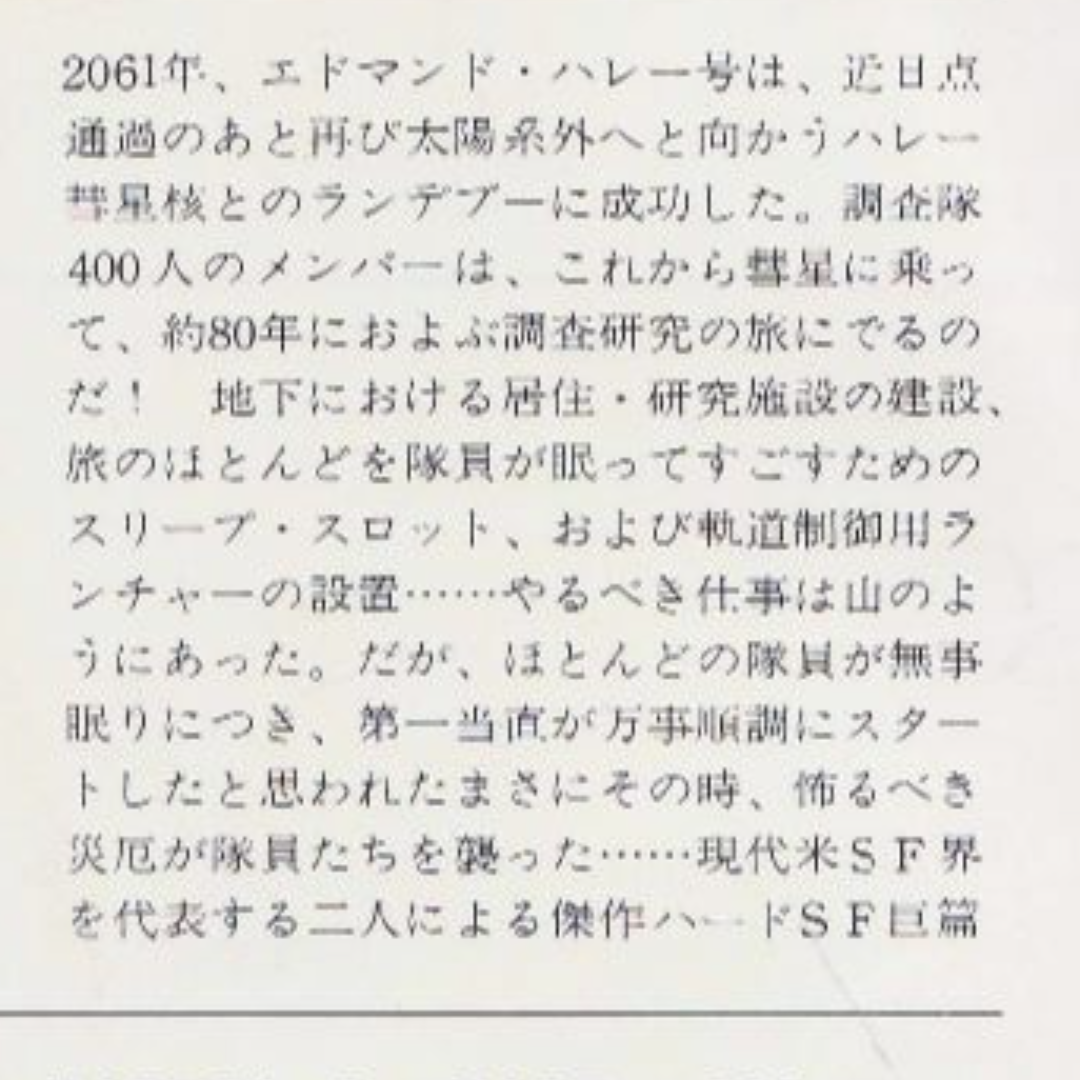 2061年、エドマンド・ハレー号は、近日点
通過のあと再び太陽系外へと向かうハレー
彗星核とのランデブーに成功した。調査隊
400人のメンバーは、これから彗星に乗っ
て、約80年におよぶ調査研究の旅にでるの
だ！　地下における居住・研究施設の建設、
旅のほとんどを隊員が眠ってすごすための
スリープ・スロット、および軌道制御用ラ
ンチャーの設置……やるべき仕事は山のよ
うにあった。だが、ほとんどの隊員が無事
眠りにつき、第一当直が万事順調にスター
トしたと思われたまさにその時、怖るべき
災厄が隊員たちを襲った……現代米ＳＦ界
を代表する二人による傑作ハードＳＦ巨篇